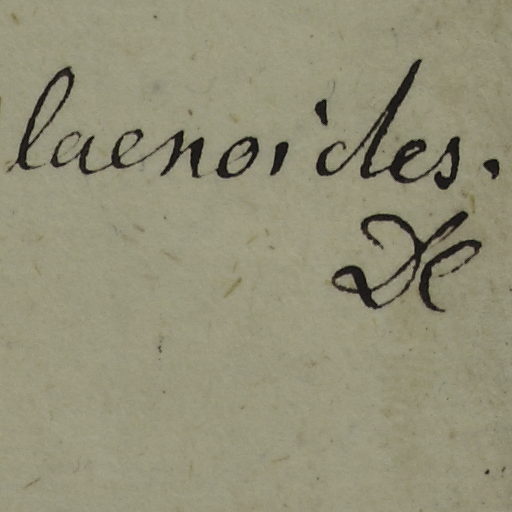 laenoides.
De